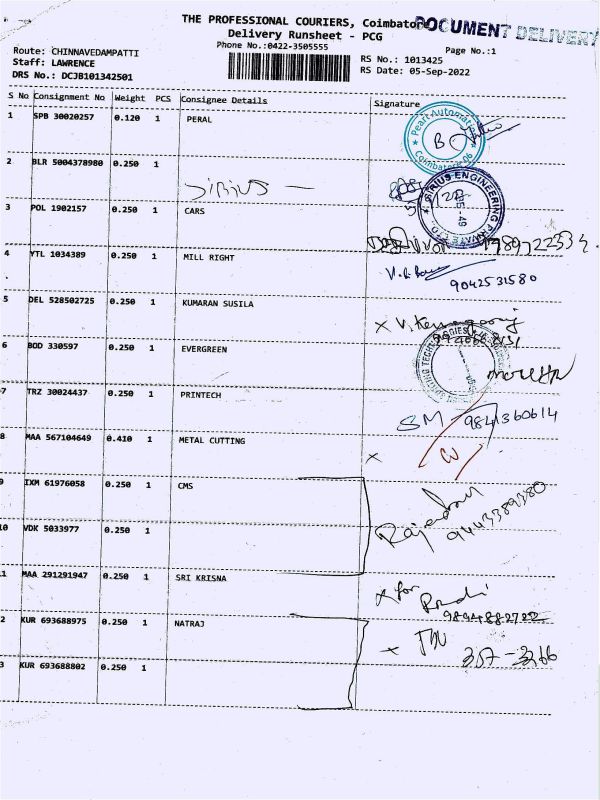 THE PROFESSIONAL COURIERS, Coimbatore
DOCUMENT DELIVERY
Delivery Runsheet - PCG
Phone No.:0422-3505555
Page No.:1
Route: CHINNAVEDAMPATTI
Staff: LAWRENCE
DRS No.: DCJB101342501
RS No.: 1013425
RS Date: 05-Sep-2022
S No Consignment No Weight PCS Consignee Details Signature
1 SPB 30020257 0.120 1 PERAL
Pearl Automation
Coimbatore-06
2 BLR 5004378980 0.250 1
Sirius
SIRIUS ENGINEERING PRIVATE LTD
3 POL 1902157 0.250 1 CARS
4 YTL 1034389 0.250 1 MILL RIGHT
9042531580
5 DEL 528502725 0.250 1 KUMARAN SUSILA
6 BOD 330597 0.250 1 EVERGREEN
7 TRZ 30024437 0.250 1 PRINTECH
SM 9841360614
8 MAA 567104649 0.410 1 METAL CUTTING
x
9 IXM 61976058 0.250 1 CMS
Rajendran
9443389380
10 VDK 5033977 0.250 1
11 MAA 291291947 0.250 1 SRI KRISNA
x for
9894882722
2 KUR 693688975 0.250 1 NATRAJ
x
357-3366
3 KUR 693688802 0.250 1